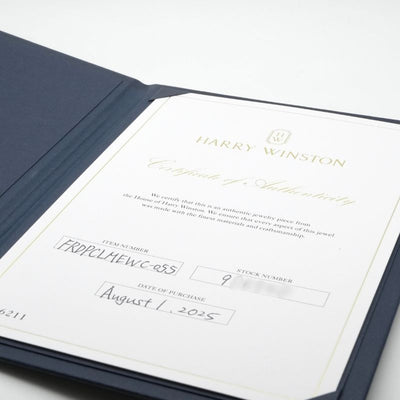 HW
HARRY WINSTON
Certificate of Authenticity
We certify that this is an authentic jewelry piece from
the House of Harry Winston. We ensure that every aspect of this jewel
was made with the finest materials and craftsmanship.
ITEM NUMBER
FRDPCLMEWC-055
STOCK NUMBER
9
DATE OF PURCHASE
August 1, 2025
6211